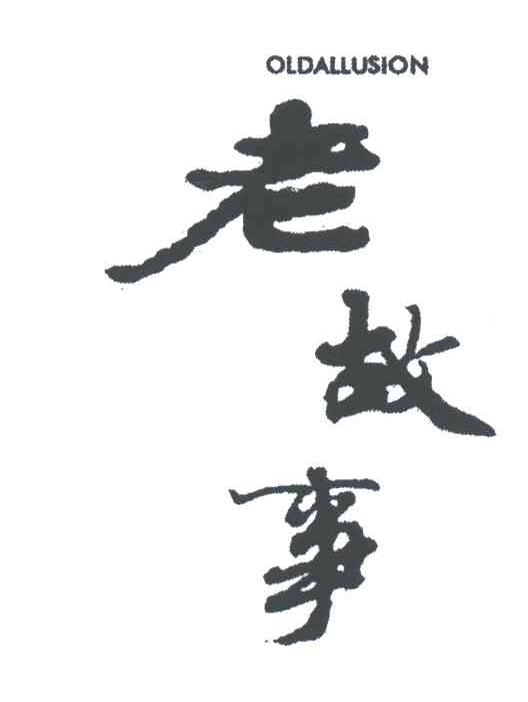 OLDALLUSION
老
故
事